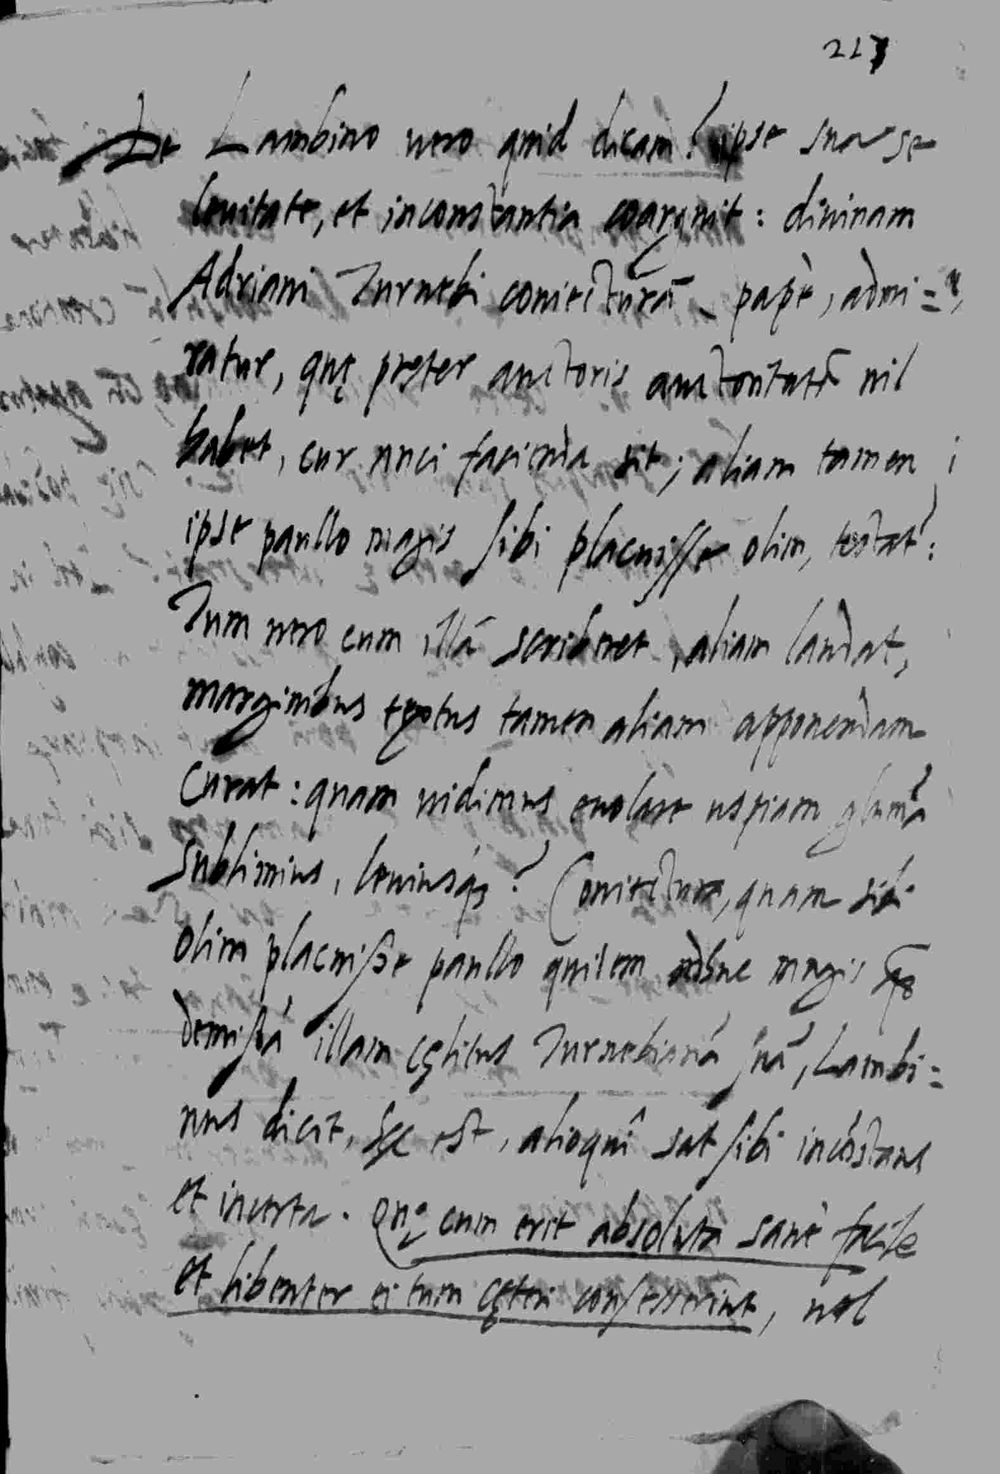 227
De Lambino vero quid dicam? ipse sua se
levitate, et inconstantia coarguit: divinam
Adriani Turnebi coniecturã papè, admi=
ratur, quę pręter auctoris auctoritatẽ nil
habet, cur nuci facienda sit; aliam tamen
ipse paullo magis sibi placuisse olim, testat̃:
Tum vero cum illã scriberet, aliam laudat,
marginibus tamen aliam apponendam
curat: quam vidimus evolare uspiam plumã
sublimius, leviusq₃? Coniectura, quam sibi
olim placuiße paullo quidem magis
demißã illam cęlitus Turnebianã, Lambi=
nus dicit, hęc est, alioquî sat sibi incõstans
et incerta. Quę cum erit absoluta sanè facile
et libenter ei tum cęteri consesserint, vel